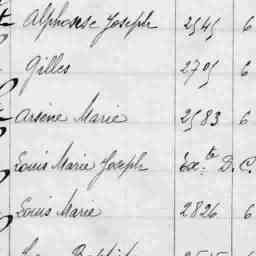 Alphonse Joseph 2545 6
Gilles 2705 6
Arsène Marie 2583 6
Louis Marie Joseph Ex.te D.C.
Louis Marie 2826 6